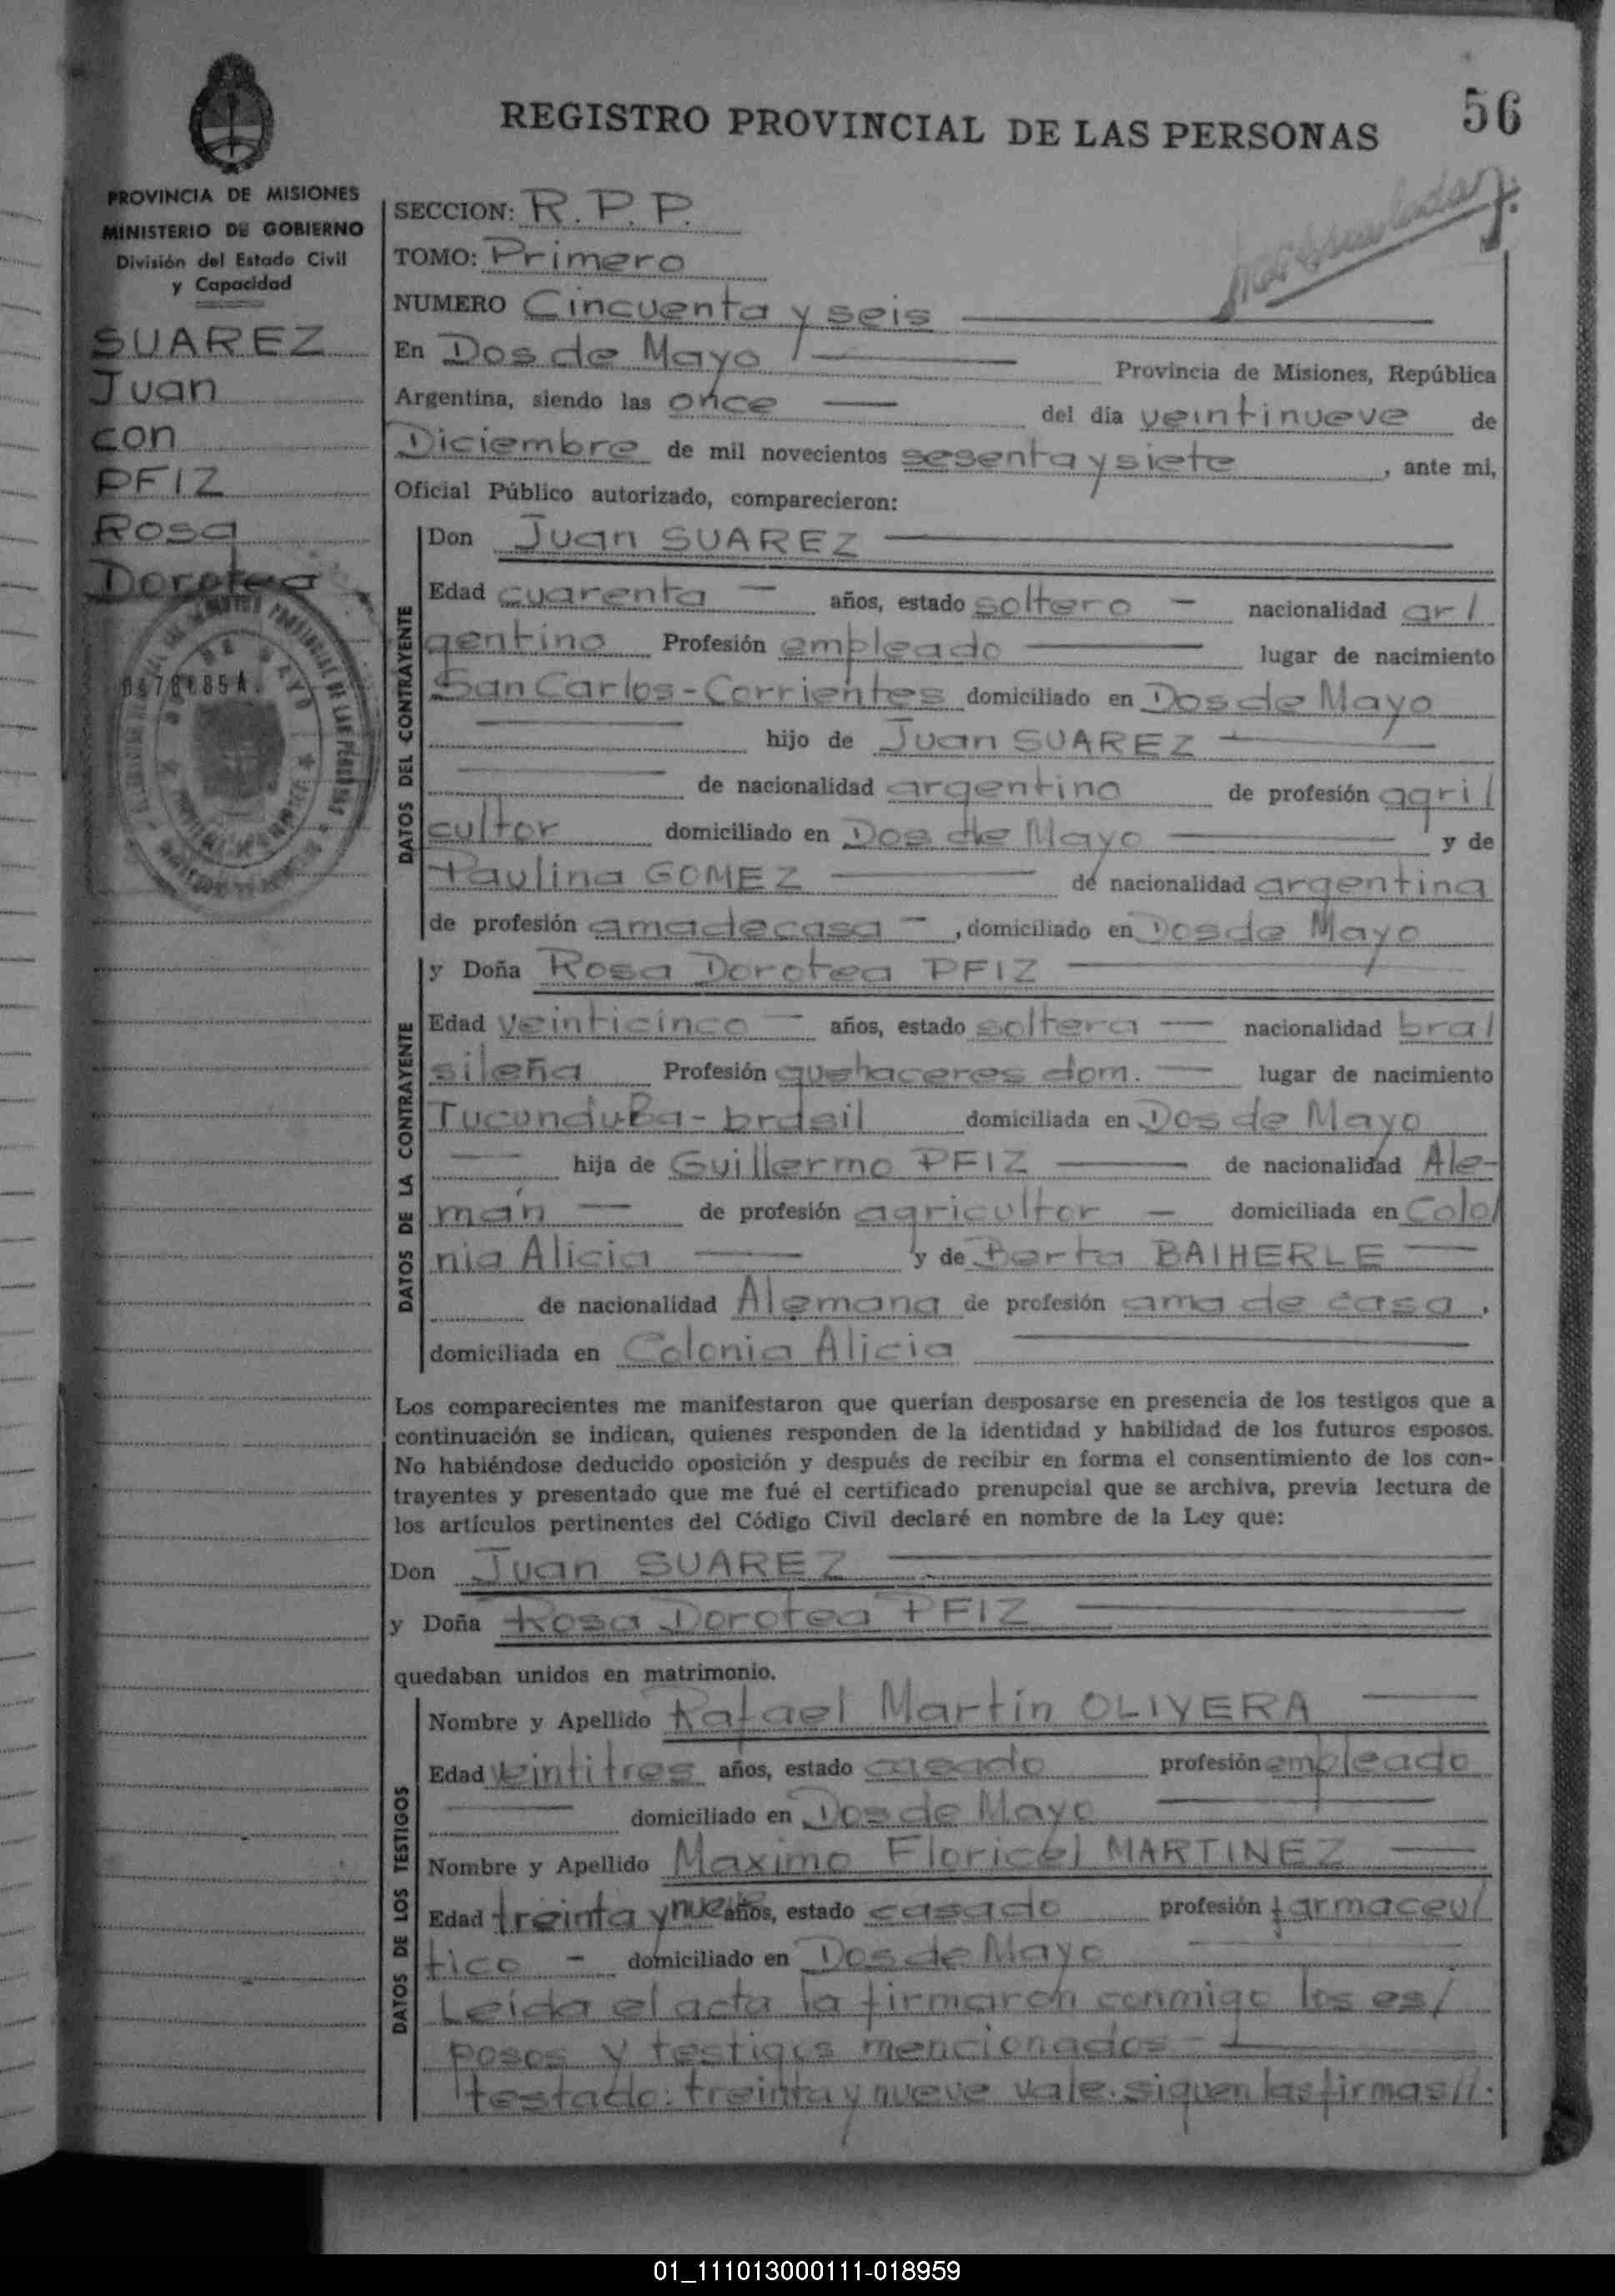 56
REGISTRO PROVINCIAL DE LAS PERSONAS
PROVINCIA DE MISIONES
MINISTERIO DE GOBIERNO
División del Estado Civil
y Capacidad
SUAREZ
Juan
con
PFIZ
Rosa
Dorotea
SECCION: R.P.P.
TOMO: Primero
NUMERO Cincuenta y seis
En Dos de Mayo Provincia de Misiones, República
Argentina, siendo las once del día veintinueve de
Diciembre de mil novecientos sesenta y siete, ante mi,
Oficial Público autorizado, comparecieron:
DATOS DEL CONTRAYENTE
Don Juan SUAREZ
Edad cuarenta años, estado soltero nacionalidad ar/
gentino Profesión empleado lugar de nacimiento
San Carlos-Corrientes domiciliado en Dos de Mayo
hijo de Juan SUAREZ
de nacionalidad argentino de profesión agri/
cultor domiciliado en Dos de Mayo y de
Paulina GOMEZ de nacionalidad argentina
de profesión ama de casa, domiciliado en Dos de Mayo
DATOS DE LA CONTRAYENTE
y Doña Rosa Dorotea PFIZ
Edad veinticinco años, estado soltera nacionalidad bra/
sileña Profesión quehaceres dom. lugar de nacimiento
TucunduBa-brasil domiciliada en Dos de Mayo
hija de Guillermo PFIZ de nacionalidad Ale-
mán de profesión agricultor domiciliada en Colo/
nia Alicia y de Berta BAIHERLE
de nacionalidad Alemana de profesión ama de casa,
domiciliada en Colonia Alicia
Los comparecientes me manifestaron que querían desposarse en presencia de los testigos que a
continuación se indican, quienes responden de la identidad y habilidad de los futuros esposos.
No habiéndose deducido oposición y después de recibir en forma el consentimiento de los con-
trayentes y presentado que me fué el certificado prenupcial que se archiva, previa lectura de
los artículos pertinentes del Código Civil declaré en nombre de la Ley que:
Don Juan SUAREZ
y Doña Rosa Dorotea PFIZ
quedaban unidos en matrimonio.
DATOS DE LOS TESTIGOS
Nombre y Apellido Rafael Martín OLIVERA
Edad veintitres años, estado casado profesión empleado
domiciliado en Dos de Mayo
Nombre y Apellido Maximo Floricel MARTINEZ
Edad treinta y nueve años, estado casado profesión farmaceu/
tico - domiciliado en Dos de Mayo
Leida el acta la firmaron conmigo los es/
posos y testigos mencionados-
testado: treinta y nueve vale. siguen las firmas//.
01_111013000111-018959